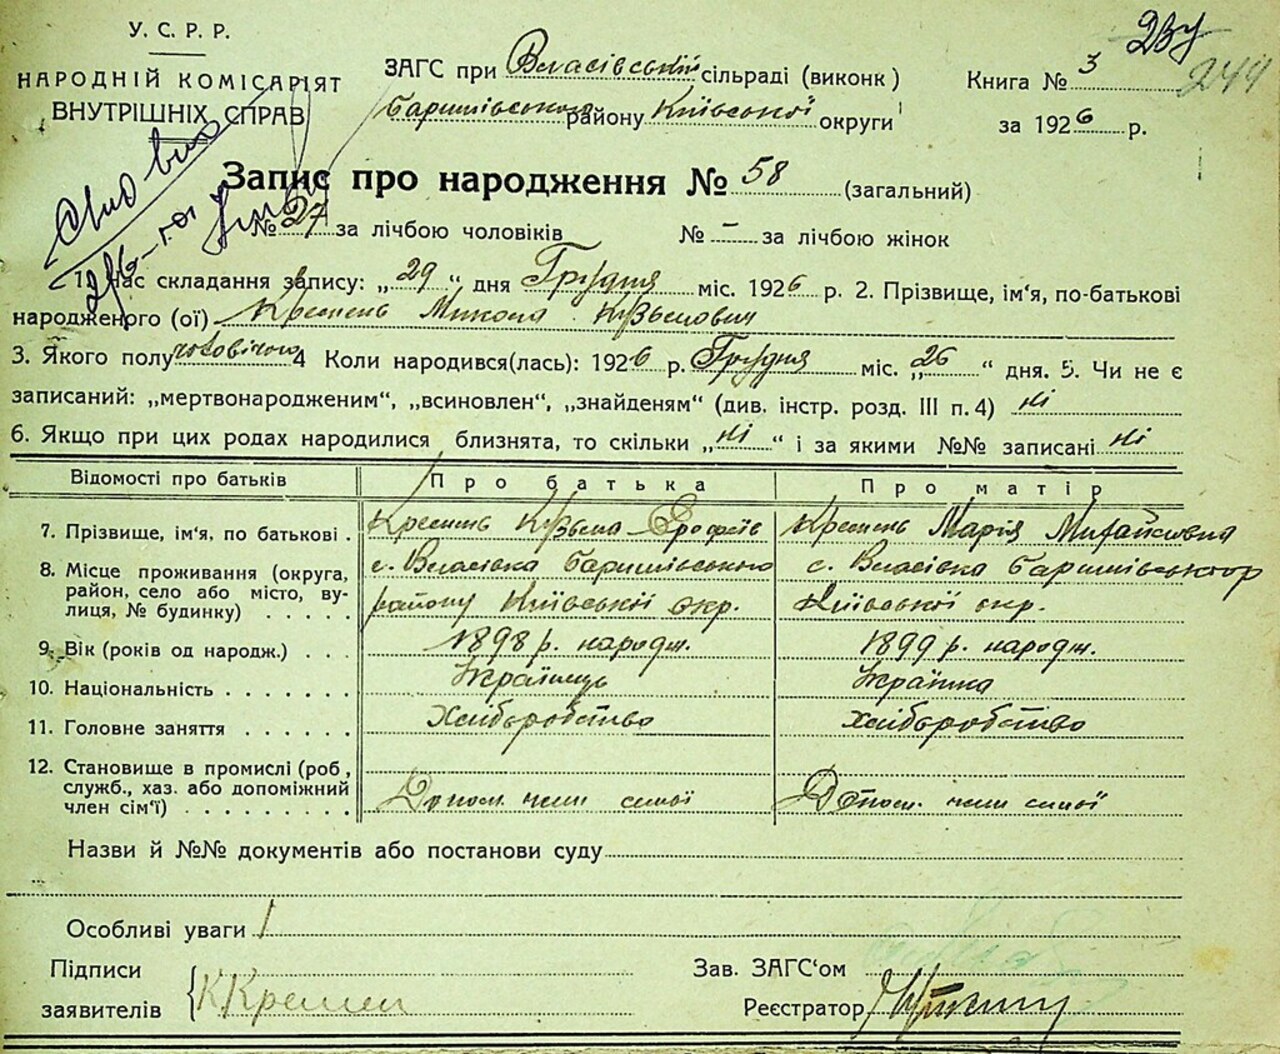 У. С. Р. Р.
НАРОДНІЙ КОМІСАРІЯТ
ВНУТРІШНІХ СПРАВ
ЗАГС при Власівській сільраді (виконк)
Баришівського району Київської округи
237
244
Книга № 3
за 1926 р.
Запис про народження № 58 (загальний)
№ 27 за лічбою чоловіків № – за лічбою жінок
1. Час складання запису: „29“ дня Грудня міс. 1926 р. 2. Прізвище, ім‘я, по-батькові
народженого (ої) Кремень Микола Кузьмович
3. Якого полу чоловічого 4 Коли народився(лась): 1926 р. Грудня міс. „26“ дня. 5. Чи не є
записаний: „мертвонародженим“, „всиновлен“, „знайденям“ (див. інстр. розд. III п. 4) ні
6. Якщо при цих родах народилися близнята, то скільки „ні“ і за якими №№ записані ні
Відомості про батьків Про батька Про матір
7. Прізвище, ім‘я, по батькові . Кремень Кузьма Єрофеїв Кремень Марія Михайловна
8. Місце проживання (округа, с. Власівка Баришівського с. Власівка Баришівського р
район, село або місто, ву- району Київської окр. Київської окр.
лиця, № будинку) . . . . .
9. Вік (років од народж.) . . . 1898 р. народж. 1899 р. народж.
10. Національність . . . . . . . Українець Українка
11. Головне заняття . . . . . . Хліборобство Хліборобство
12. Становище в промислі (роб.,
служб., хаз. або допоміжний Допом. член сем'ї Допом. член сем'ї
член сім‘ї) . . . . . . . . .
Назви й №№ документів або постанови суду
Особливі уваги
Підписи Зав. ЗАГС‘ом
заявителів К Кремен Реєстратор